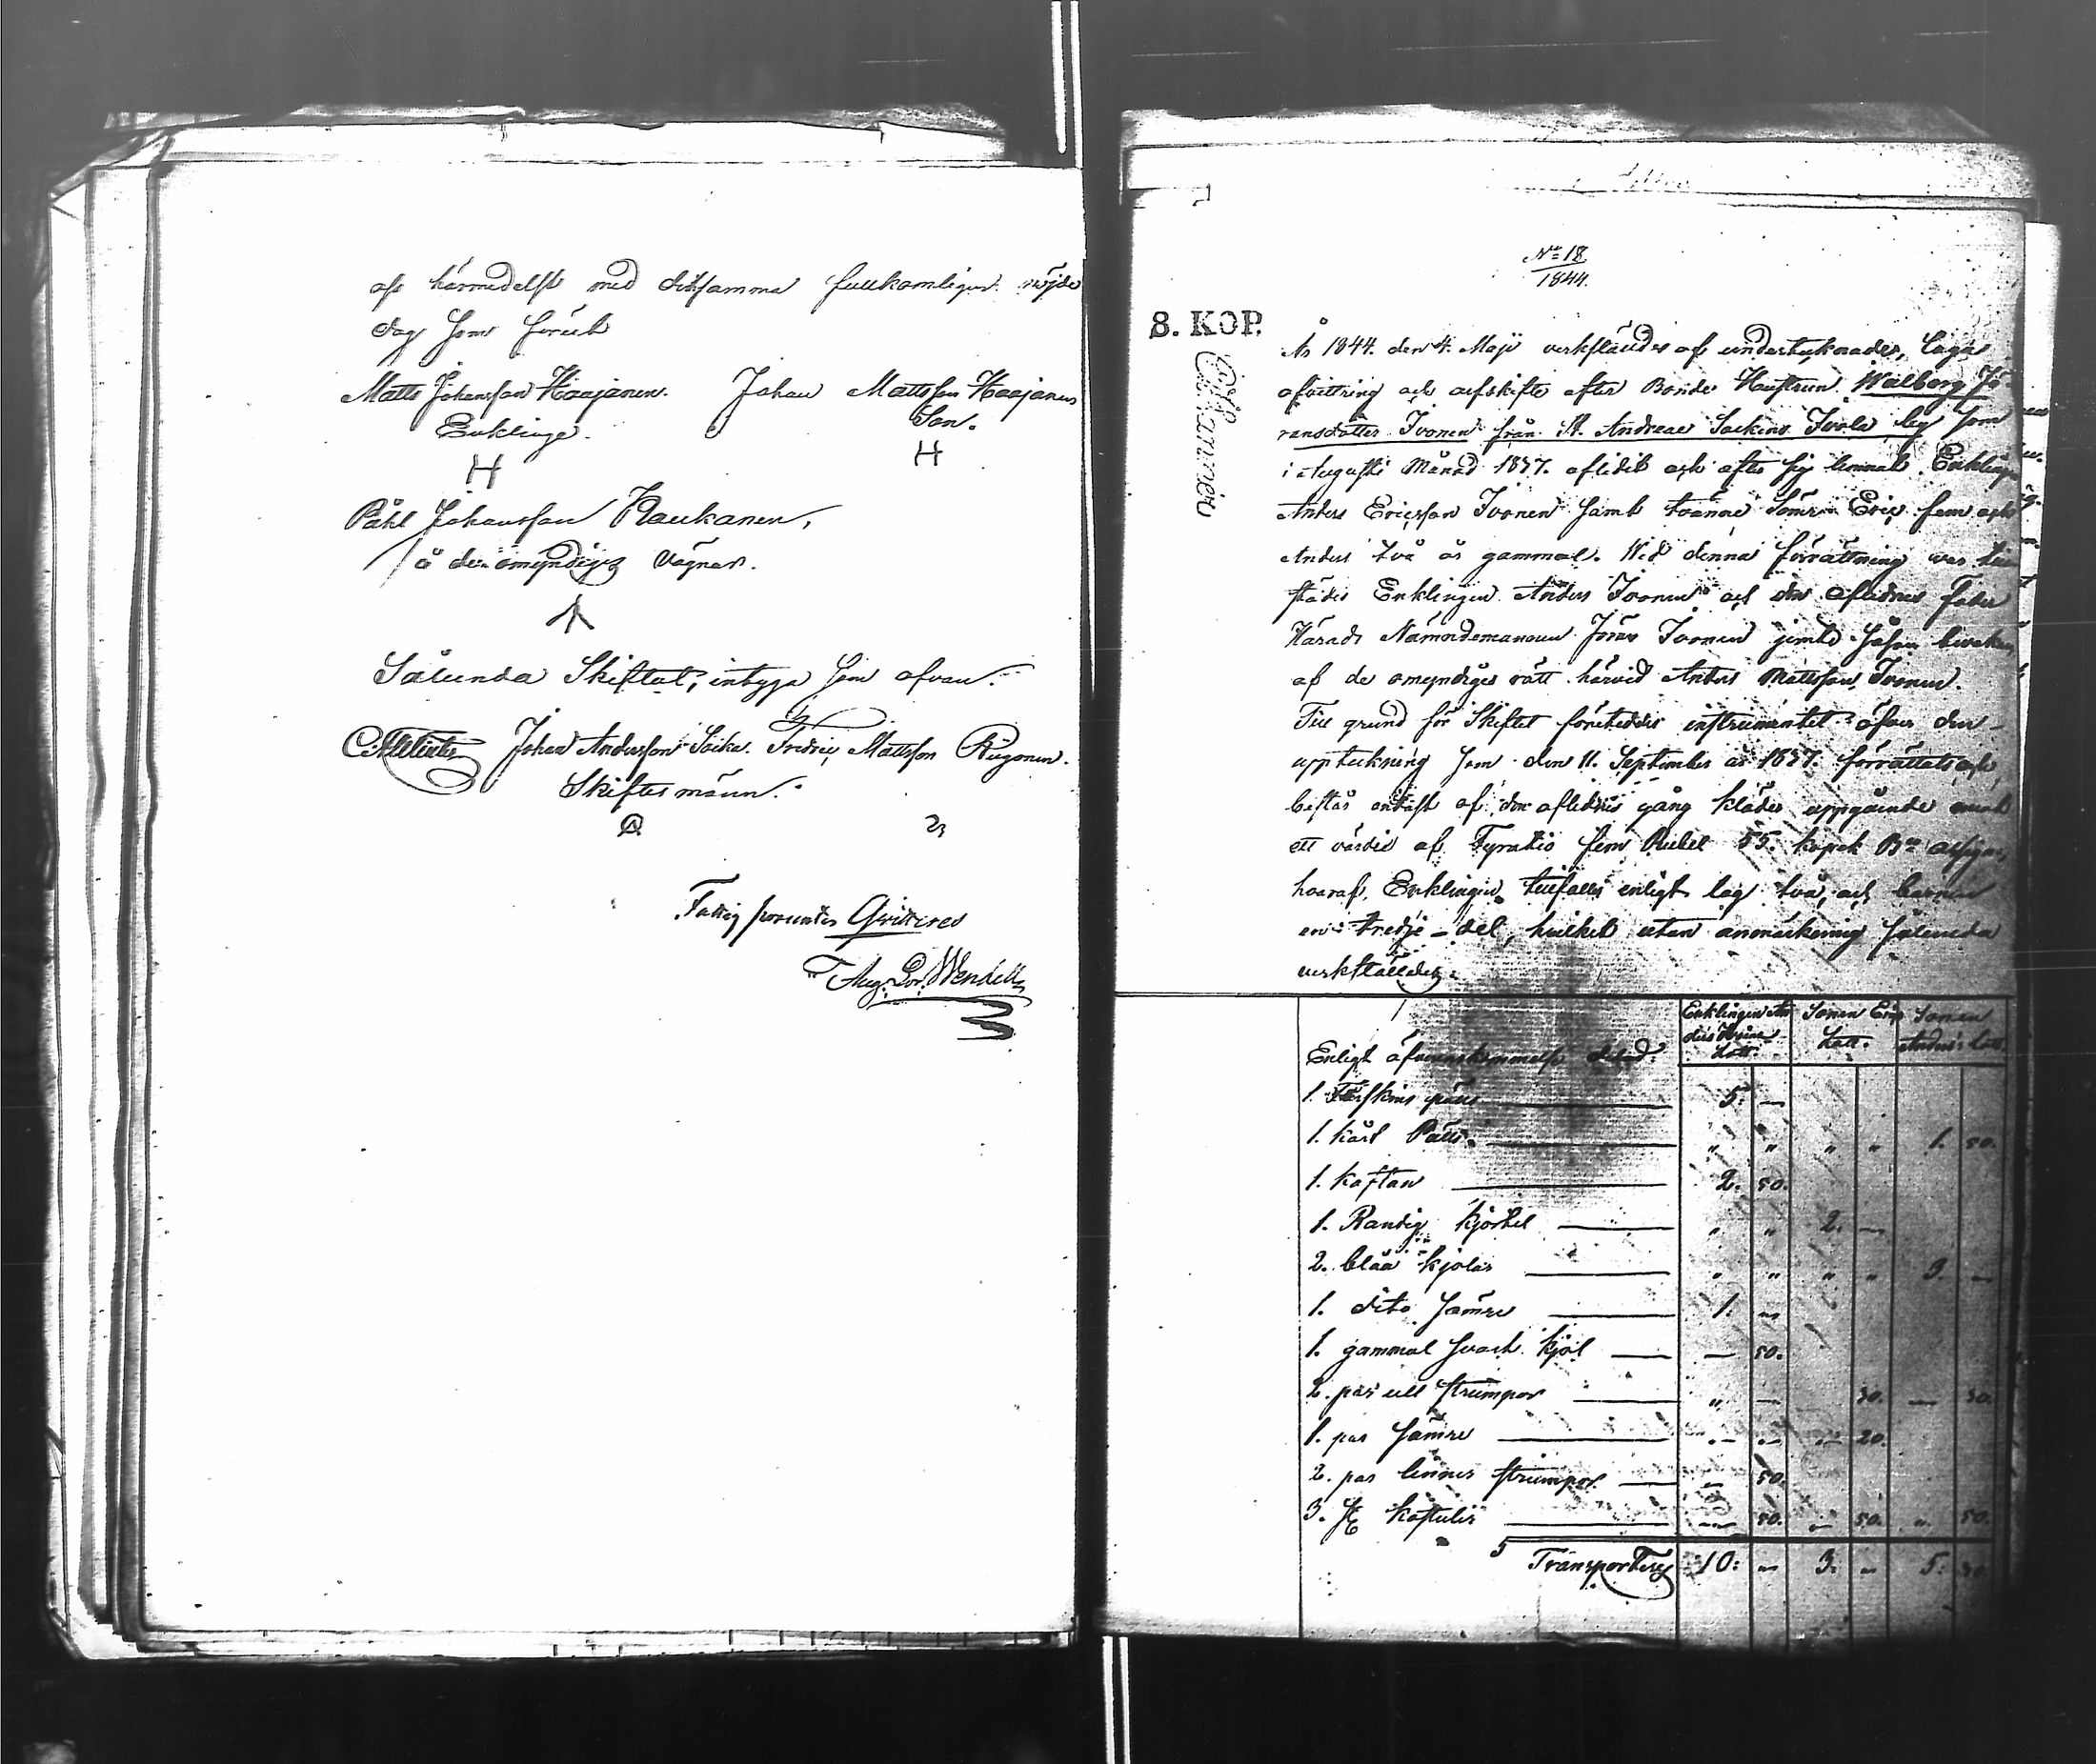 oss härmedelst med detsamma fullkomligen nöjde
dag som förut
Matts Johansson Haajanen. Johan Mattsson Haajanen
Enklinge. Son.
H H
Påhl Johansson Raukanen,
å de omyndiges vägnar.
Sålunda Skiftat, intyga som ofvan.
Johan Andersson Soika. Fredric Mattsson Rugonen.
Skiftesmänn.
Fattig procenten Qvitteras
Aug. Wendell
No 18
1844.
8. KOP.
År 1844. den 4. Maji verkställdes af undertecknade, laga
afvittring och arfskifte efter Bonde Hustrun Walborg Jö-
ransdotter Ivonen från St. Andreae Sockens Ivola by som
i Augusti Månad 1837. aflidit och efter sig lemnat Enklingen
Anders Ericsson Ivonen samt tvänne Söner Eric fem och
Anders två år gammal. Wid denna förrättning var till
städes Enklingen Anders Ivonen och den aflidnes Fader
Härads Nämndemannen Jöran Ivonen jemte såsom bevakare
af de omyndiges rätt härvid Anders Mattsson Ivonen.
Till grund för Skiftet företeddes instrumentet öfver den
uppteckning som den 11. September år 1837. förrättats och
består endast af den aflidnes gång kläder uppgående med
ett värde af Fyratio fem Rubel 55. kopek Bco Assign:
hvaraf Enklingen tillfaller enligt lag två, och barnen
en tredje-del, hvilket utan anmärkning sålunda
verkställdes.
Enklingen An Sonen Eric Sonen
ders Ivonens Lott. Anders Lott.
Lott.
Enligt öfverenskommelse delad.
1. Fårskins päls 5. —
1. kårt Päls „ „ „ „ 1. 50.
1. Kaftan 2. 50.
1. Randig kjortel „ „ 2. —
2. blåa kjolar „ „ „ „ 3. —
1. dito sämre 1. —
1. gammal svart kjol — 50.
2. par ull strumpor „ — 30. — 30.
1. par sämre „ 20.
2. par linnes strumpor — 50.
3. st. — 50. „ 50. „ 50.
Transporteres 10. „ 3. „ 5. 30.